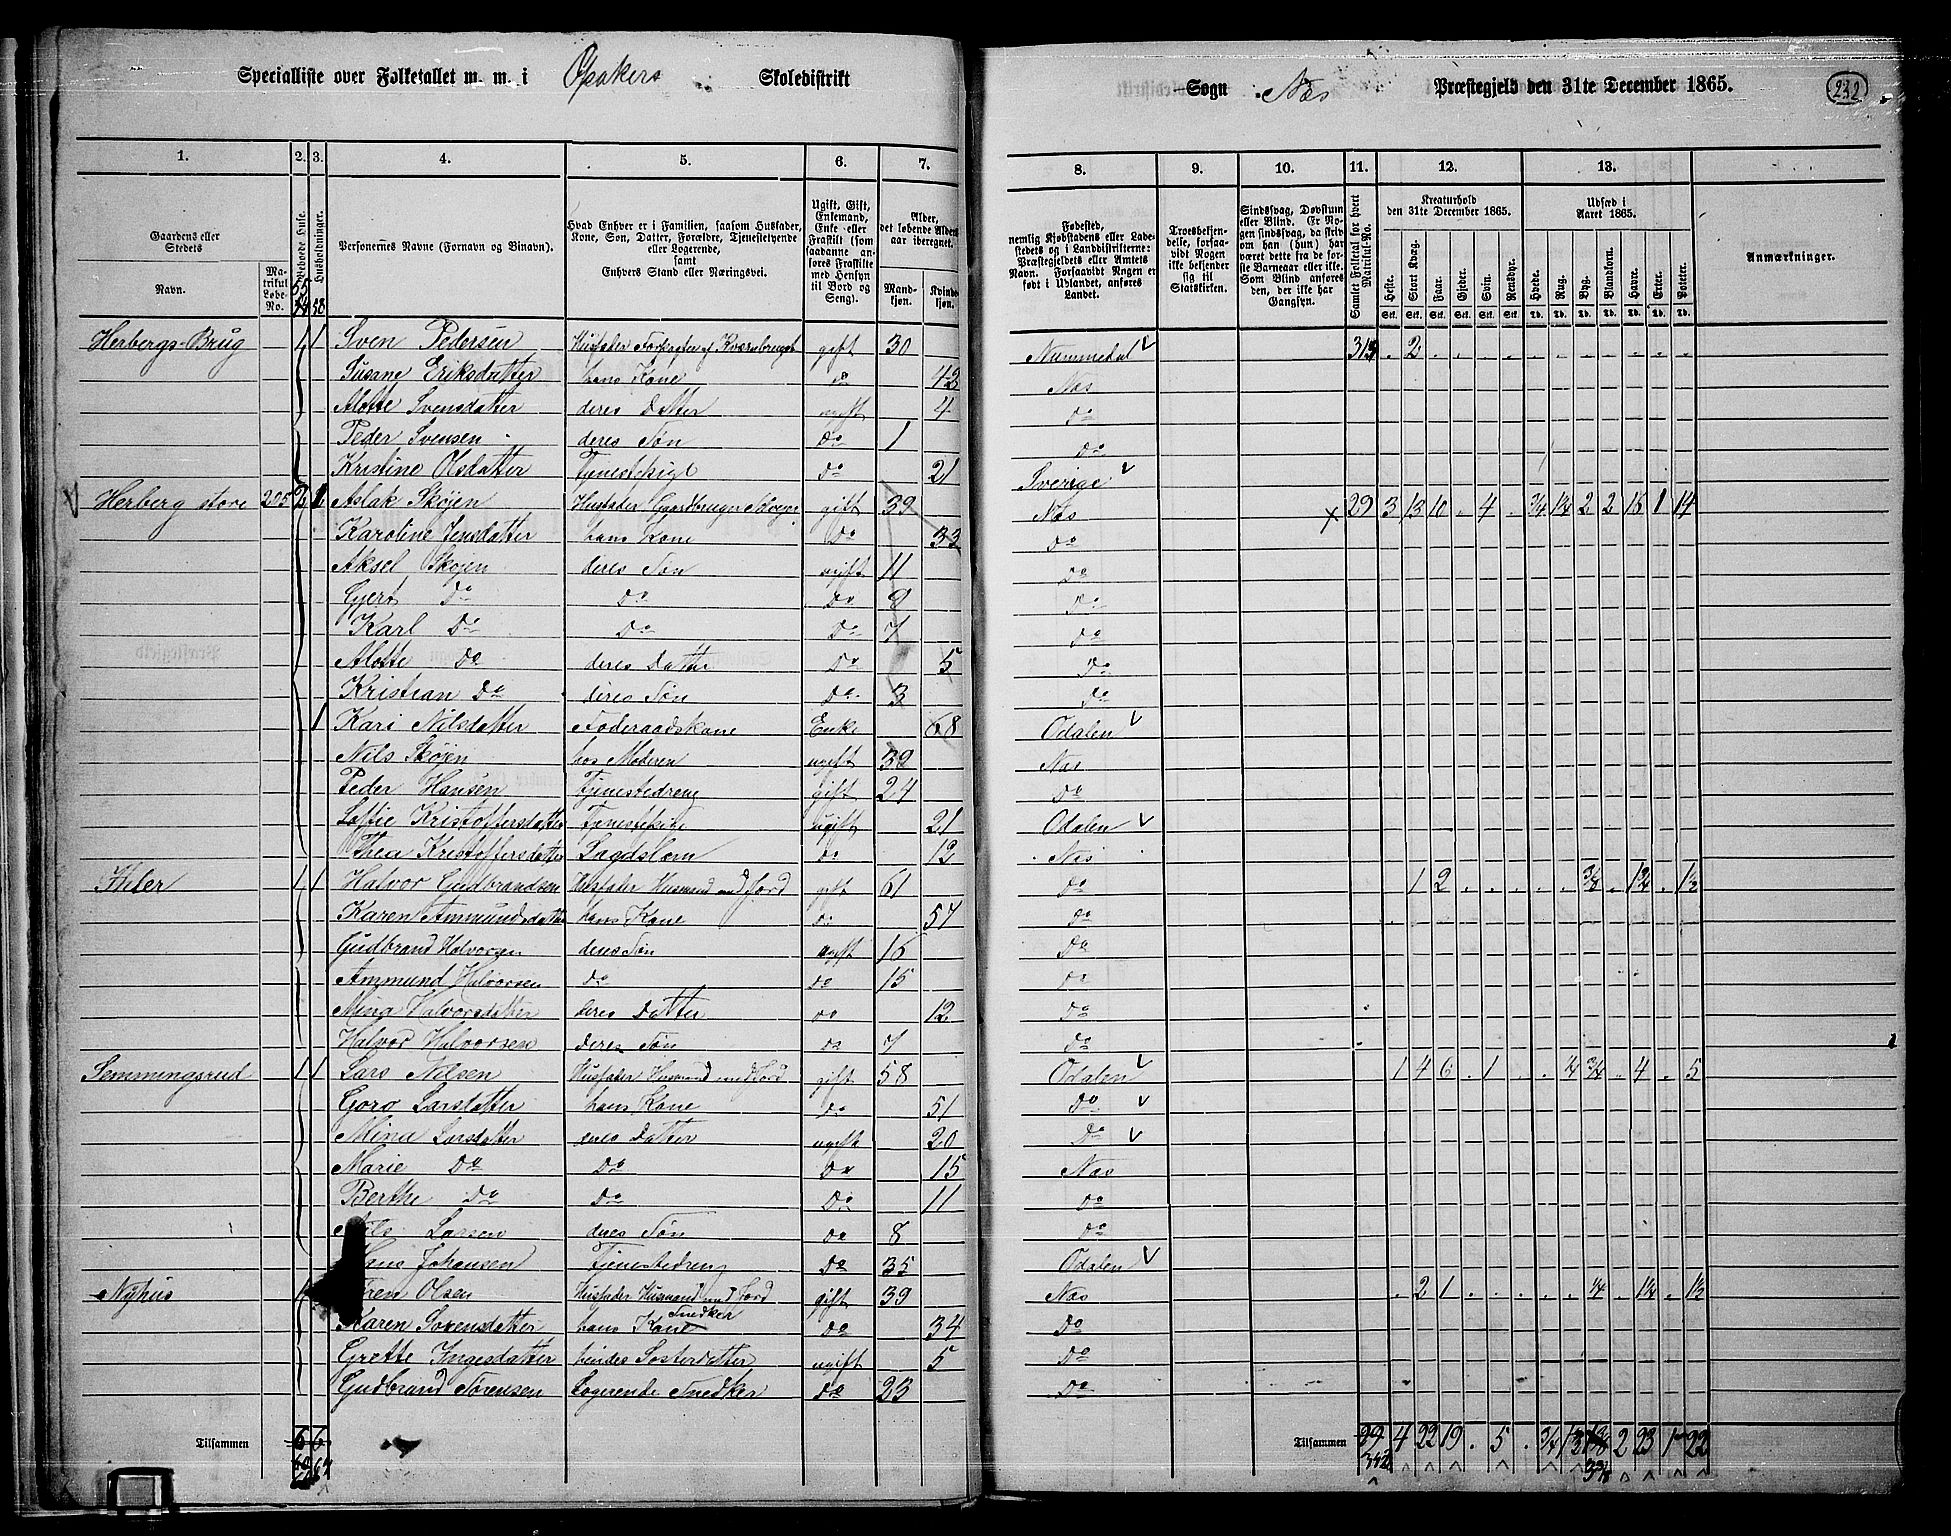 Specialliste over Folketallet m. m. i Opakers Skoledistrikt Sogn Næs Præstegjeld den 31te December 1865. 232
1. 2. 3. 4. 5. 6. 7. 8. 9. 10. 11. 12. 13.
Gaardens eller Stedets Navn. Matrikul Løbe-No. Beboede Huse. Husholdninger. Personernes Navne (Fornavn og Binavn). Hvad Enhver er i Familien, saasom Husfader, Kone, Søn, Datter, Forældre, Tjenestetyende eller Logerende, samt Enhvers Stand eller Næringsvei. Ugift, Gift, Enkemand, Enke eller Fraskilt (som saadanne anføres Fraskilte med Hensyn til Bord og Seng). Alder, det løbende Alders-aar iberegnet. Mandkjøn. Kvindekjøn.
Fødested, nemlig Kjøbstadens eller Ladestedets og i Landdistrikterne: Præstegjeldets eller Amtets Navn. Forsaavidt Nogen er født i Udlandet, anføres Landet. Troesbekjendelse, forsaavidt Nogen ikke bekjender sig til Statskirken. Sindssvag, Døvstum eller Blind. Er Nogen sindssvag, da skrives om han (hun) har været dette fra de første Barneaar eller ikke. Som Blind anføres den, der ikke har Gangsyn. Samlet Folketal for hvert Matrikul-No. Kreaturhold den 31te December 1865. Heste. Stort Kvæg. Faar. Gjeder. Svin. Rensdyr. Udsæd i Aaret 1865. Hvede. Rug. Byg. Blandkorn. Havre. Erter. Poteter. Anmærkninger.
Herbergs-Brug 1 1 Sven Pedersen Husfader Forpagter af Kværnbruget gift 30 Nummedal 313 . 2
Susane Eriksdatter hans Kone do 42 Næs
Alotte Svensdatter deres Datter ugift 4 Do
Peder Svensen deres Søn Do 1 Do
Kristine Olsdatter Tjenestepige Do 21 Sverige
Herberg store 205 2 1 Aslak Skøjen Husfader Gaardbruger Selveier gift 39 Næs 29 3 13 10 . 4 . 3/4 1 1/4 2 2 16 1 14
Karoline Jensdatter hans Kone Do 33 Do
Aksel Skøjen deres Søn ugift 11 Do
Gjert Do Do Do 9 Do
Karl Do Do Do 7 Do
Alotte Do deres Datter Do 5 Do
Kristian Do deres Søn Do 3 Do
1 Kari Nilsdatter Føderaadskone Enke 68 Odalen
Nils Skøjen hos Moderen ugift 39 Næs
Peder Hansen Tjenestedreng gift 24 Do
Loftie Kristoffersdatter Tjenestepige ugift 21 Odalen
Thea Kristoffersdatter Lægdslem do 12 Næs
Ihler 1 1 Halvor Gudbrandsen Husfader Husmand med Jord gift 61 Do . 1 2 . . . . . 3/8 . 1 3/4 . 1 1/2
Karen Ammundsdatter hans Kone do 57 Do
Gudbrand Halvorsen deres Søn ugift 16 Do
Ammund Halvorsen do do 15 Do
Mina Halvorsdatter deres Datter do 12 Do
Halvor Halvorsen deres Søn do 7 Do
Semmingsrud 1 1 Lars Nilsen Husfader Husmand med Jord gift 58 Odalen 1 4 6 . 1 . . 1/4 3/4 . 4 . 5
Goro Larsdatter hans Kone Do 51 Do
Mina Larsdatter deres Datter ugift 20 Do
Marie Do Do Do 15 Næs
Berthe Do Do Do 11 Do
Nils Larsen deres Søn do 8 Do
Hans Johansen Tjenestedreng Do 35 Odalen
Nyhus 1 Olsen Husfader Husmand med Jord gift 39 Næs . 2 1 . . . . . 1/4 . 1 1/4 . 1 1/2
Snedker
Karen Sørensdatter hans Kone Do 34 Do
Grette Ingesdatter hendes Søsterdatter ugift 5 Do
Gudbrand Sørensen Logerende Snedker Do 23 Do
Tilsammen 6 6 Tilsammen 4 22 19 . 5 . 3/4 2 23 1 22